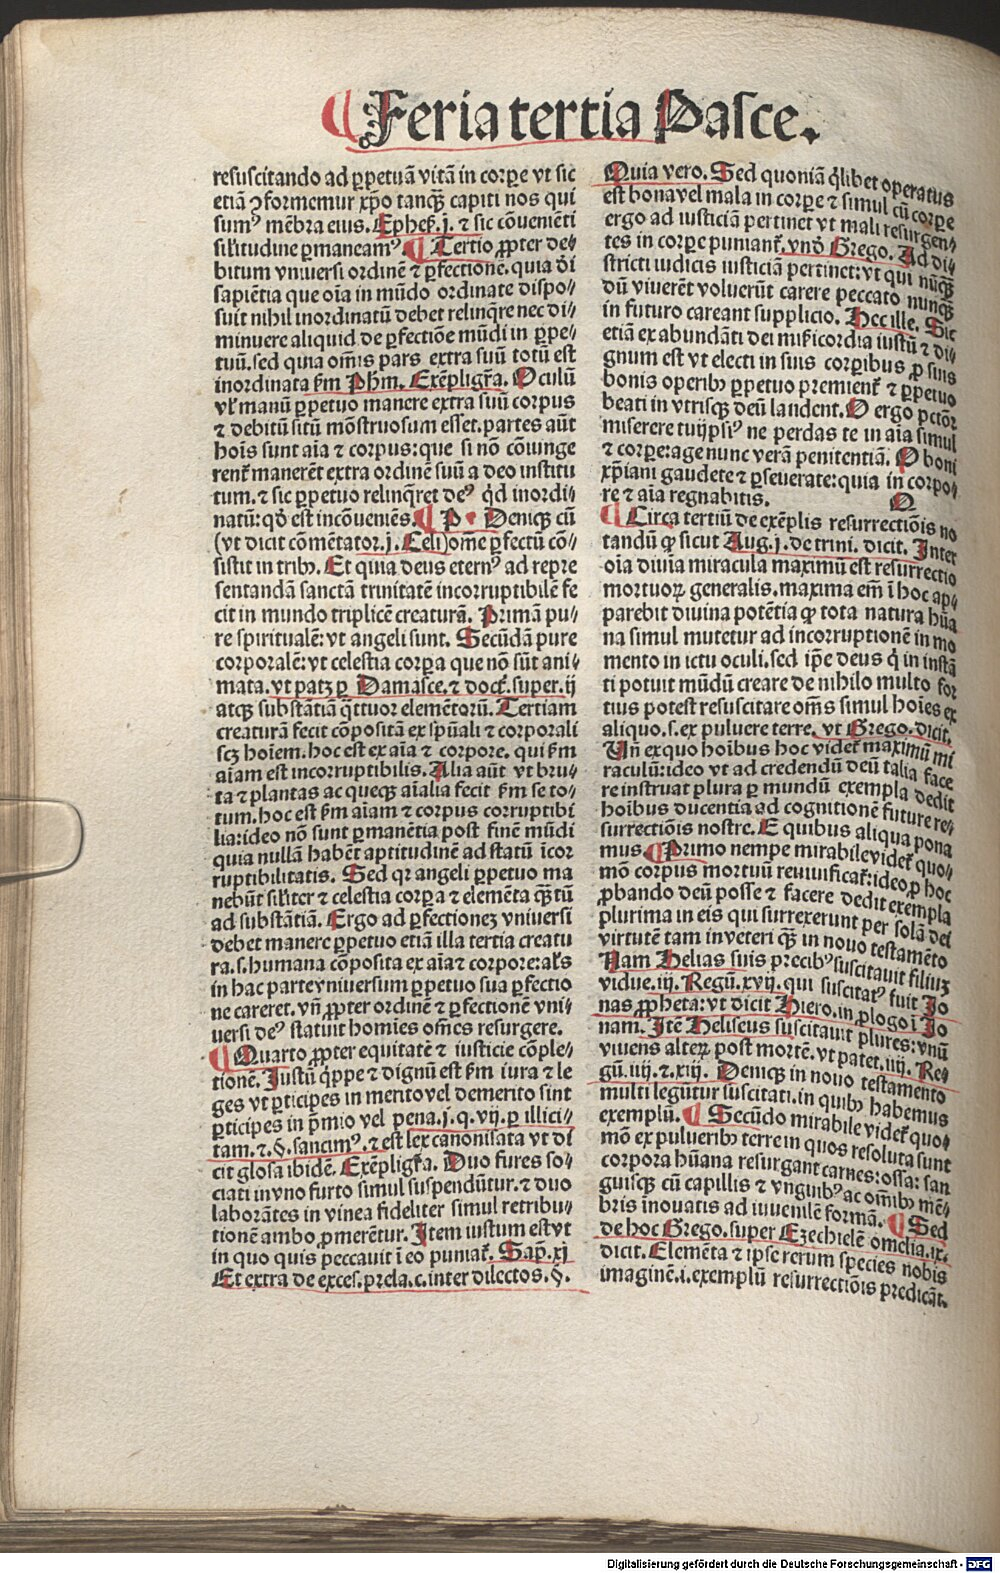 ¶ Feria tertia Pasce.
resuscitando ad ꝑpetuā vitā in corꝑe vt sic
etiā ꝯformemur xp̄o tanqȝ̄ capiti nos qui
sumꝰ mēbra eius. Ephes̄. j. ⁊ sic cōueniēti
sil̓itudine ꝑmaneamꝰ. ¶ Tertio ꝓpter de⸗
bitum vniuersi ordinē ⁊ ꝑfectionē. quia dei
sapiētia que oīa in mūdo ordinate dispo⸗
suit nihil inordinatū debet relinq̄re nec di⸗
minuere aliquid de ꝑfectiōe mūdi in ꝑpe⸗
tuū. sed quia om̄is pars extra suū totū est
inordinata ẜm Ph̄m. Exēpligr̄a. Oculū
vl̓ manū ꝑpetuo manere extra suū corpus
⁊ debitū sitū mōstruosum esset. partes aūt
hoīs sunt aīa ⁊ corpus: que si nō cōiunge
rent̄ manerēt extra ordinē suū a deo institu
tum. ⁊ sic ꝑpetuo relinq̄ret deꝰ qd̄ inordi⸗
natū: qd̄ est incōueniēs. ¶ P. Deniqȝ cū
(vt dicit cōmētator. j. Celi) om̄e ꝑfectū cō⸗
sistit in tribꝰ. Et quia deus eternꝰ ad repre
sentandā sanctā trinitatē incorruptibilē fe
cit in mundo triplicē creaturā. Primā pu⸗
re spiritualē: vt angeli sunt. Secūdā pure
corporalē: vt celestia corꝑa que nō sūt ani⸗
mata. vt patȝ ꝑ Damasce. ⁊ doct̄. super. ij
atqȝ substātiā q̄ttuor elemētorū. Tertiam
creaturā fecit cōpositā ex spūali ⁊ corporali
scȝ hoīem. hoc est ex aīa ⁊ corpore. qui ẜm
aīam est incorruptibilis. Alia aūt vt bru⸗
ta ⁊ plantas ac queqȝ aīalia fecit ẜm se to⸗
tum. hoc est ẜm aīam ⁊ corpus corruptibi
lia: ideo nō sunt ꝑmanētia post finē mūdi
quia nullā habēt aptitudinē ad statū īcor
ruptibilitatis. Sed qr angeli ꝑpetuo ma
nebūt sil̓iter ⁊ celestia corꝑa ⁊ elemēta qȝ̄tū
ad substātiā. Ergo ad ꝑfectioneȝ vniuersi
debet manere ꝑpetuo etiā illa tertia creatu
ra. s. humana cōposita ex aīa ⁊ corpore: al̓s
in hac parte vniuersum ꝑpetuo sua ꝑfectio
ne careret. vn̄ ꝓpter ordinē ⁊ ꝑfectionē vni⸗
uersi deꝰ statuit homīes om̄es resurgere.
¶ Quarto ꝓpter equitatē ⁊ iusticie cōple⸗
tionē. Justū q̄ppe ⁊ dignū est ẜm iura ⁊ le
ges vt ꝑticipes in merito vel demerito sint
ꝑticipes in p̄mio vel pena. j. q. vij. ꝑ illici⸗
tam. ⁊. §. sancimꝰ. ⁊ est lex canonisata vt di
cit glosa ibidē. Exēpligr̄a. Duo fures so⸗
ciati in vno furto simul suspendūtur. ⁊ duo
laborātes in vinea fideliter simul retribu⸗
tionē ambo ꝓmerētur. Item iustum est vt
in quo quis peccauit ī eo puniat̄. Sap̄. xj
Et extra de exces. prela. c. inter dilectos. §.
Quia vero. Sed quoniā q̄libet operatus
est bona vel mala in corꝑe ⁊ simul cū corꝑe
ergo ad iusticiā pertinet vt mali resurgen⸗
tes in corꝑe puniant̄. vnd̄ Grego. Ad di⸗
stricti iudicis iusticiā pertinet: vt qui nūqȝ̄
dū viuerēt voluerūt carere peccato nunqȝ̄
in futuro careant supplicio. Hec ille. Sic
etiā ex abundāti dei mis̄icordia iustū ⁊ di⸗
gnum est vt electi in suis corꝑibus ꝓ suis
bonis operibꝰ ꝑpetuo premient̄ ⁊ ꝑpetuo
beati in vtrisqȝ deū laudent. O ergo pctōr
miserere tuijpsiꝰ ne perdas te in aīa simul
⁊ corꝑe: age nunc verā penitentiā. O boni
xp̄iani gaudete ⁊ ꝑseuerate: quia in corpo⸗
re ⁊ aīa regnabitis. O
¶ Circa tertiū de exēplis resurrectiōis no
tandū ꝙ sicut Aug. j. de trini. dicit. Inter
oīa diuīa miracula maximū est resurrectio
mortuoꝝ generalis. maxima em̄ ī hoc ap⸗
parebit diuina potētia ꝙ tota natura hūa
na simul mutetur ad incorruptionē in mo
mento in ictu oculi. sed ip̄e deus q̄ in instā
ti potuit mūdū creare de nihilo multo for
tius potest resuscitare om̄s simul hoīes ex
aliquo. s. ex puluere terre. vt Grego. dicit.
Un̄ ex quo hoībus hoc videt̄ maximū mi
raculū: ideo vt ad credendū deū talia face
re instruat plura ꝑ mundū exempla dedit
hoibus ducentia ad cognitionē future re⸗
surrectiōis nostre. E quibus aliqua pona
mus. ¶ Primo nempe mirabile videt̄ quo⸗
mō corpus mortuū reuiuificat̄: ideo ꝓ hoc
ꝓbando deū posse ⁊ facere dedit exempla
plurima in eis qui surrexerunt per solā dei
virtutē tam in veteri qȝ̄ in nouo testamēto
Nam Helias suis precibꝰ suscitauit filiuȝ
vidue. iij. Regū. xvij. qui suscitatꝰ fuit Jo
nas ꝓpheta: vt dicit Hiero. in ꝓlogo ī Jo
nam. Itē Heliseus suscitauit plures: vnū
viuens alterꝝ post mortē. vt patet. iiij. Re⸗
gū. iiij. ⁊. xiij. Deniqȝ in nouo testamento
multi legūtur suscitati. in quibꝰ habemus
exemplū. ¶ Secūdo mirabile videt̄ quo⸗
mō ex pulueribꝰ terre in quos resoluta sunt
corpora hūana resurgant carnes: ossa: san
guisqȝ cū capillis ⁊ vnguibꝰ ac om̄ibꝰ mē⸗
bris īnouatis ad iuuenilē formā. ¶ Sed
de hoc Grego. super Ezechielē omelia. ix.
dicit. Elemēta ⁊ ipse rerum species nobis
imaginē. i. exemplū resurrectiōis predicāt.
Digitalisierung gefördert durch die Deutsche Forschungsgemeinschaft - DFG